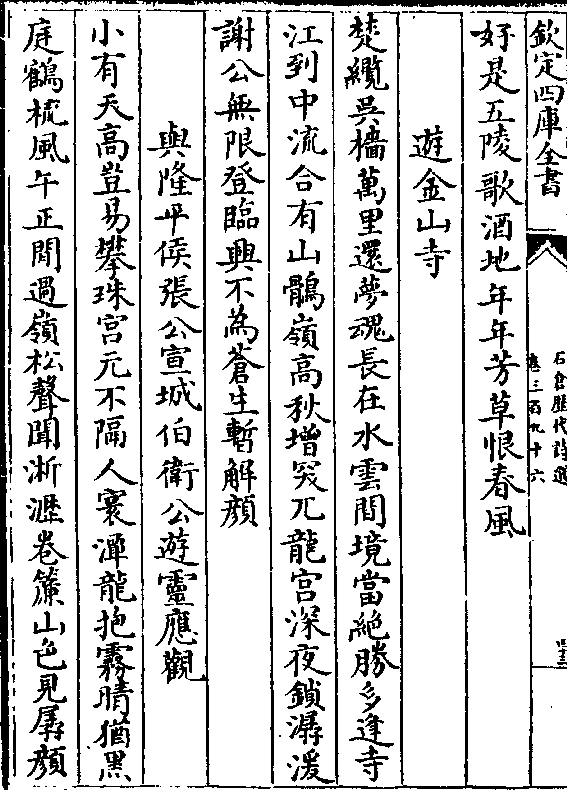 欽定四庫全書
石倉歴代詩選
卷三百九十六
好是五陵歌酒地年年芳草恨春風
遊金山寺
楚纜吳檣萬里還夢魂長在水雲間境當絶勝多逢寺
江到中流合有山鶻嶺高秋增突兀龍宮深夜鎖潺湲
謝公無限登臨興不為蒼生暫解顔
與隆平侯張公宣城伯衛公遊靈應觀
小有天高豈易攀珠宮元不隔人寰潭龍抱霧晴猶黑
庭鶴梳風午正閒過嶺松聲聞淅瀝卷簾山色見孱顔